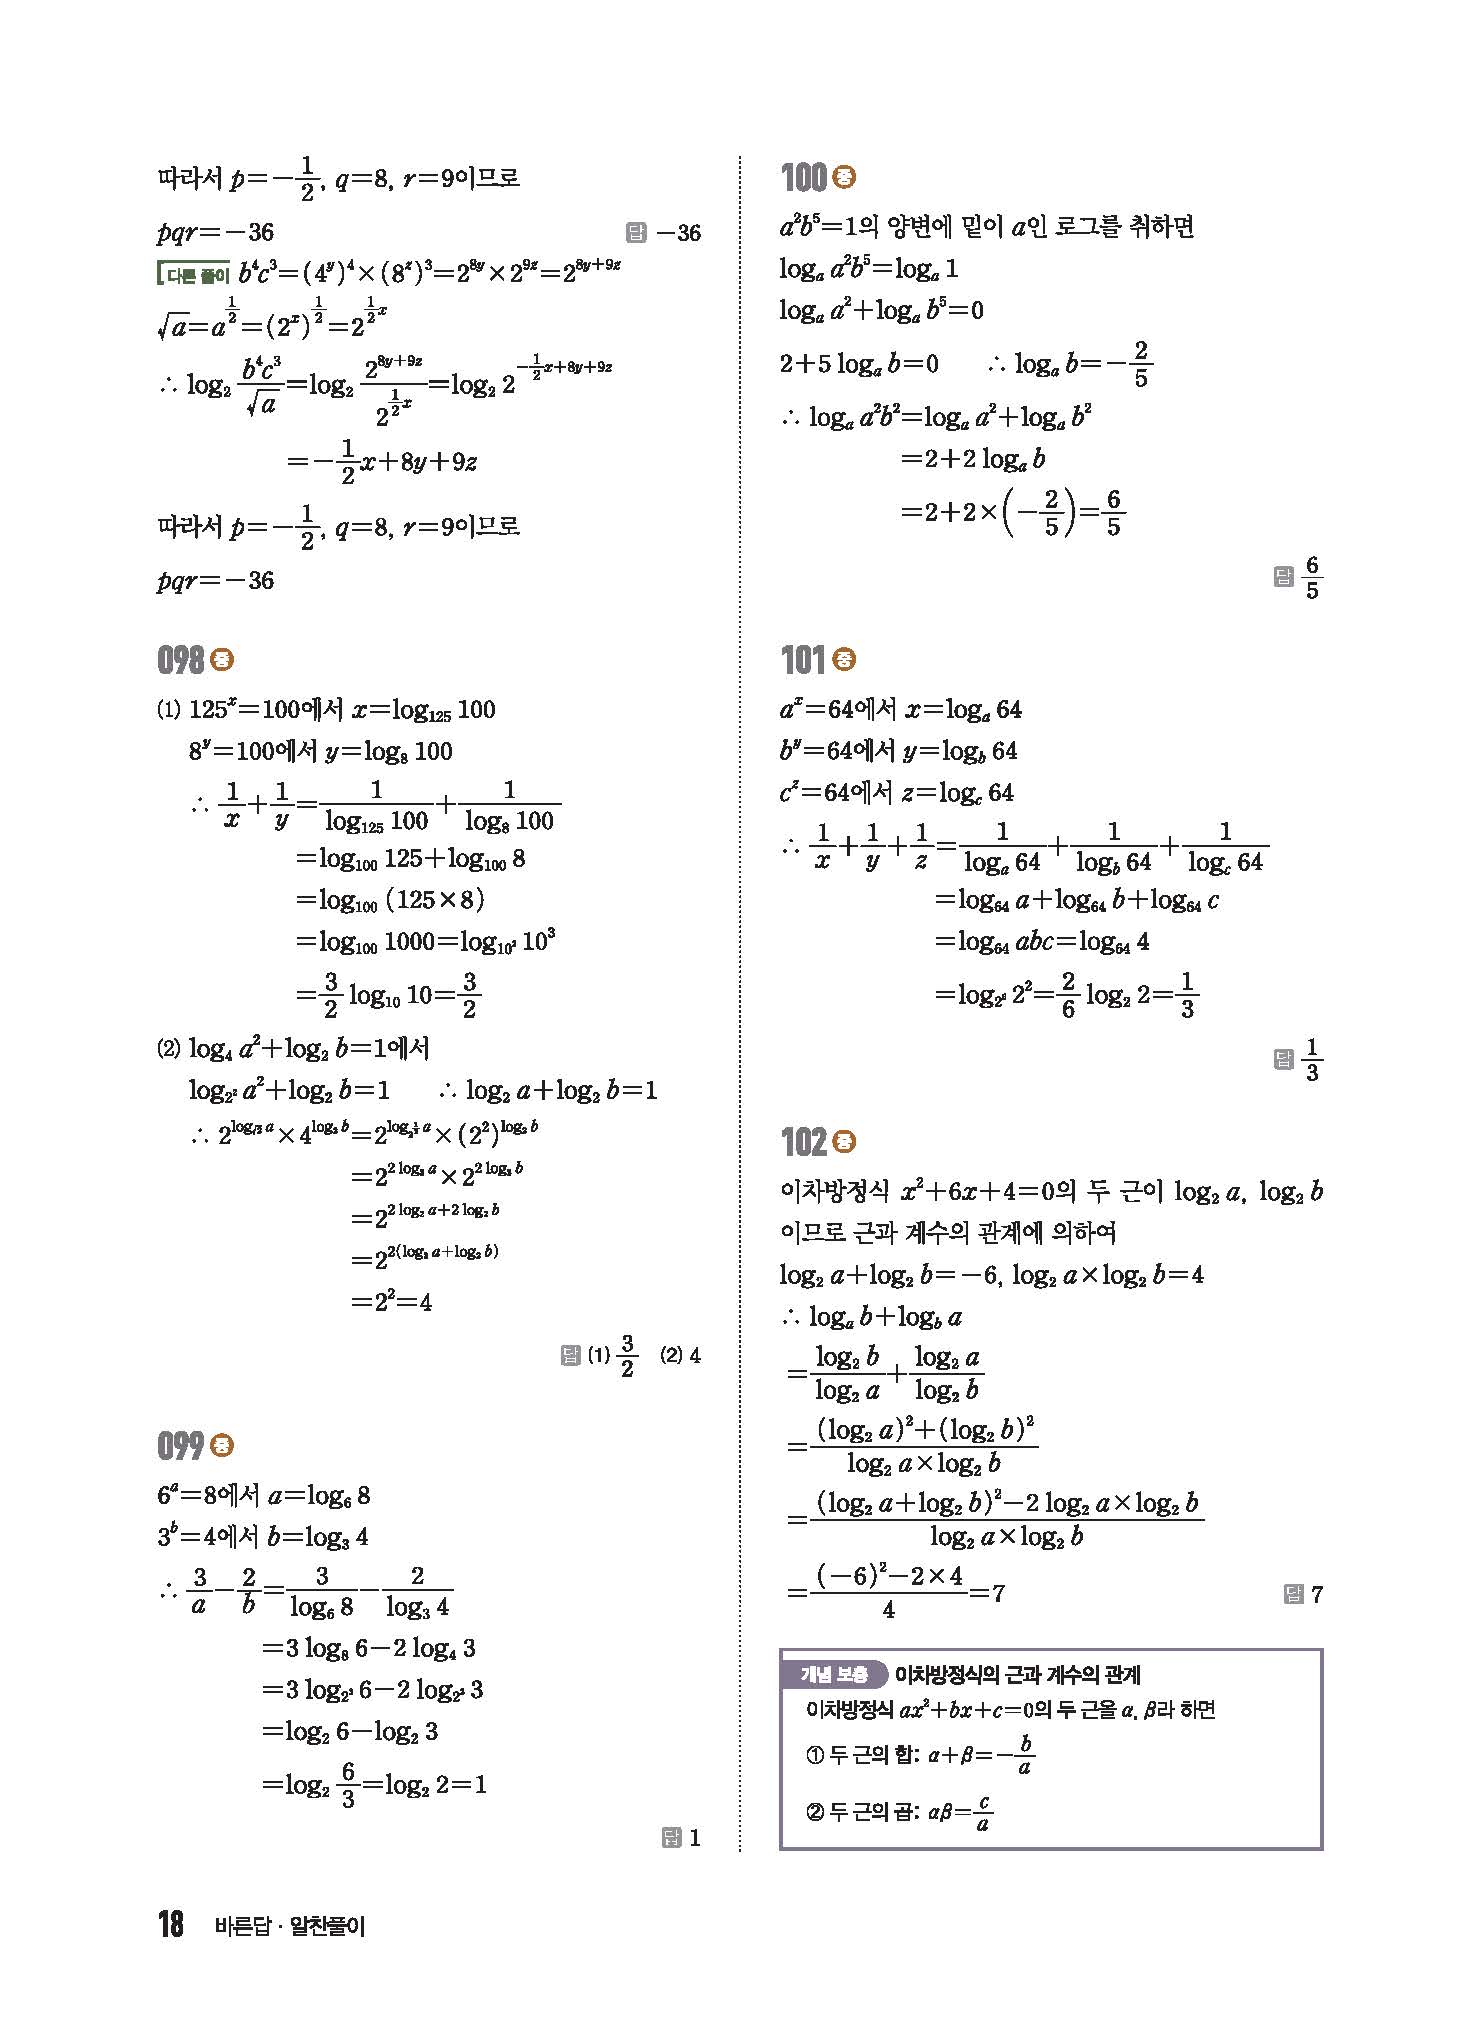 따라서 p=-1/2, q=8, r=9이므로
pqr=-36 답 -36
다른 풀이 b⁴c³=(4^y)⁴×(8^z)³=2^(8y)×2^(9z)=2^(8y+9z)
√a=a^(1/2)=(2^x)^(1/2)=2^(1/2 x)
∴ log₂ b⁴c³/√a=log₂ 2^(8y+9z)/2^(1/2 x)=log₂ 2^(-1/2 x+8y+9z)
=-1/2 x+8y+9z
따라서 p=-1/2, q=8, r=9이므로
pqr=-36
098 중
⑴ 125^x=100에서 x=log₁₂₅ 100
8^y=100에서 y=log₈ 100
∴ 1/x+1/y=1/(log₁₂₅ 100)+1/(log₈ 100)
=log₁₀₀ 125+log₁₀₀ 8
=log₁₀₀ (125×8)
=log₁₀₀ 1000=log_(10²) 10³
=3/2 log₁₀ 10=3/2
⑵ log₄ a²+log₂ b=1에서
log_(2²) a²+log₂ b=1 ∴ log₂ a+log₂ b=1
∴ 2^(log_(√2) a)×4^(log₂ b)=2^(log_(2^(1/2)) a)×(2²)^(log₂ b)
=2^(2 log₂ a)×2^(2 log₂ b)
=2^(2 log₂ a+2 log₂ b)
=2^(2(log₂ a+log₂ b))
=2²=4
답 ⑴ 3/2 ⑵ 4
099 중
6^a=8에서 a=log₆ 8
3^b=4에서 b=log₃ 4
∴ 3/a-2/b=3/(log₆ 8)-2/(log₃ 4)
=3 log₈ 6-2 log₄ 3
=3 log_(2³) 6-2 log_(2²) 3
=log₂ 6-log₂ 3
=log₂ 6/3=log₂ 2=1
답 1
100 중
a²b⁵=1의 양변에 밑이 a인 로그를 취하면
log_a a²b⁵=log_a 1
log_a a²+log_a b⁵=0
2+5 log_a b=0 ∴ log_a b=-2/5
∴ log_a a²b²=log_a a²+log_a b²
=2+2 log_a b
=2+2×(-2/5)=6/5
답 6/5
101 중
a^x=64에서 x=log_a 64
b^y=64에서 y=log_b 64
c^z=64에서 z=log_c 64
∴ 1/x+1/y+1/z=1/(log_a 64)+1/(log_b 64)+1/(log_c 64)
=log₆₄ a+log₆₄ b+log₆₄ c
=log₆₄ abc=log₆₄ 4
=log_(2⁶) 2²=2/6 log₂ 2=1/3
답 1/3
102 중
이차방정식 x²+6x+4=0의 두 근이 log₂ a, log₂ b
이므로 근과 계수의 관계에 의하여
log₂ a+log₂ b=-6, log₂ a×log₂ b=4
∴ log_a b+log_b a
=(log₂ b)/(log₂ a)+(log₂ a)/(log₂ b)
=((log₂ a)²+(log₂ b)²)/(log₂ a×log₂ b)
=((log₂ a+log₂ b)²-2 log₂ a×log₂ b)/(log₂ a×log₂ b)
=((-6)²-2×4)/4=7 답 7
개념 보충 이차방정식의 근과 계수의 관계
이차방정식 ax²+bx+c=0의 두 근을 α, β라 하면
① 두 근의 합: α+β=-b/a
② 두 근의 곱: αβ=c/a
18 바른답 · 알찬풀이